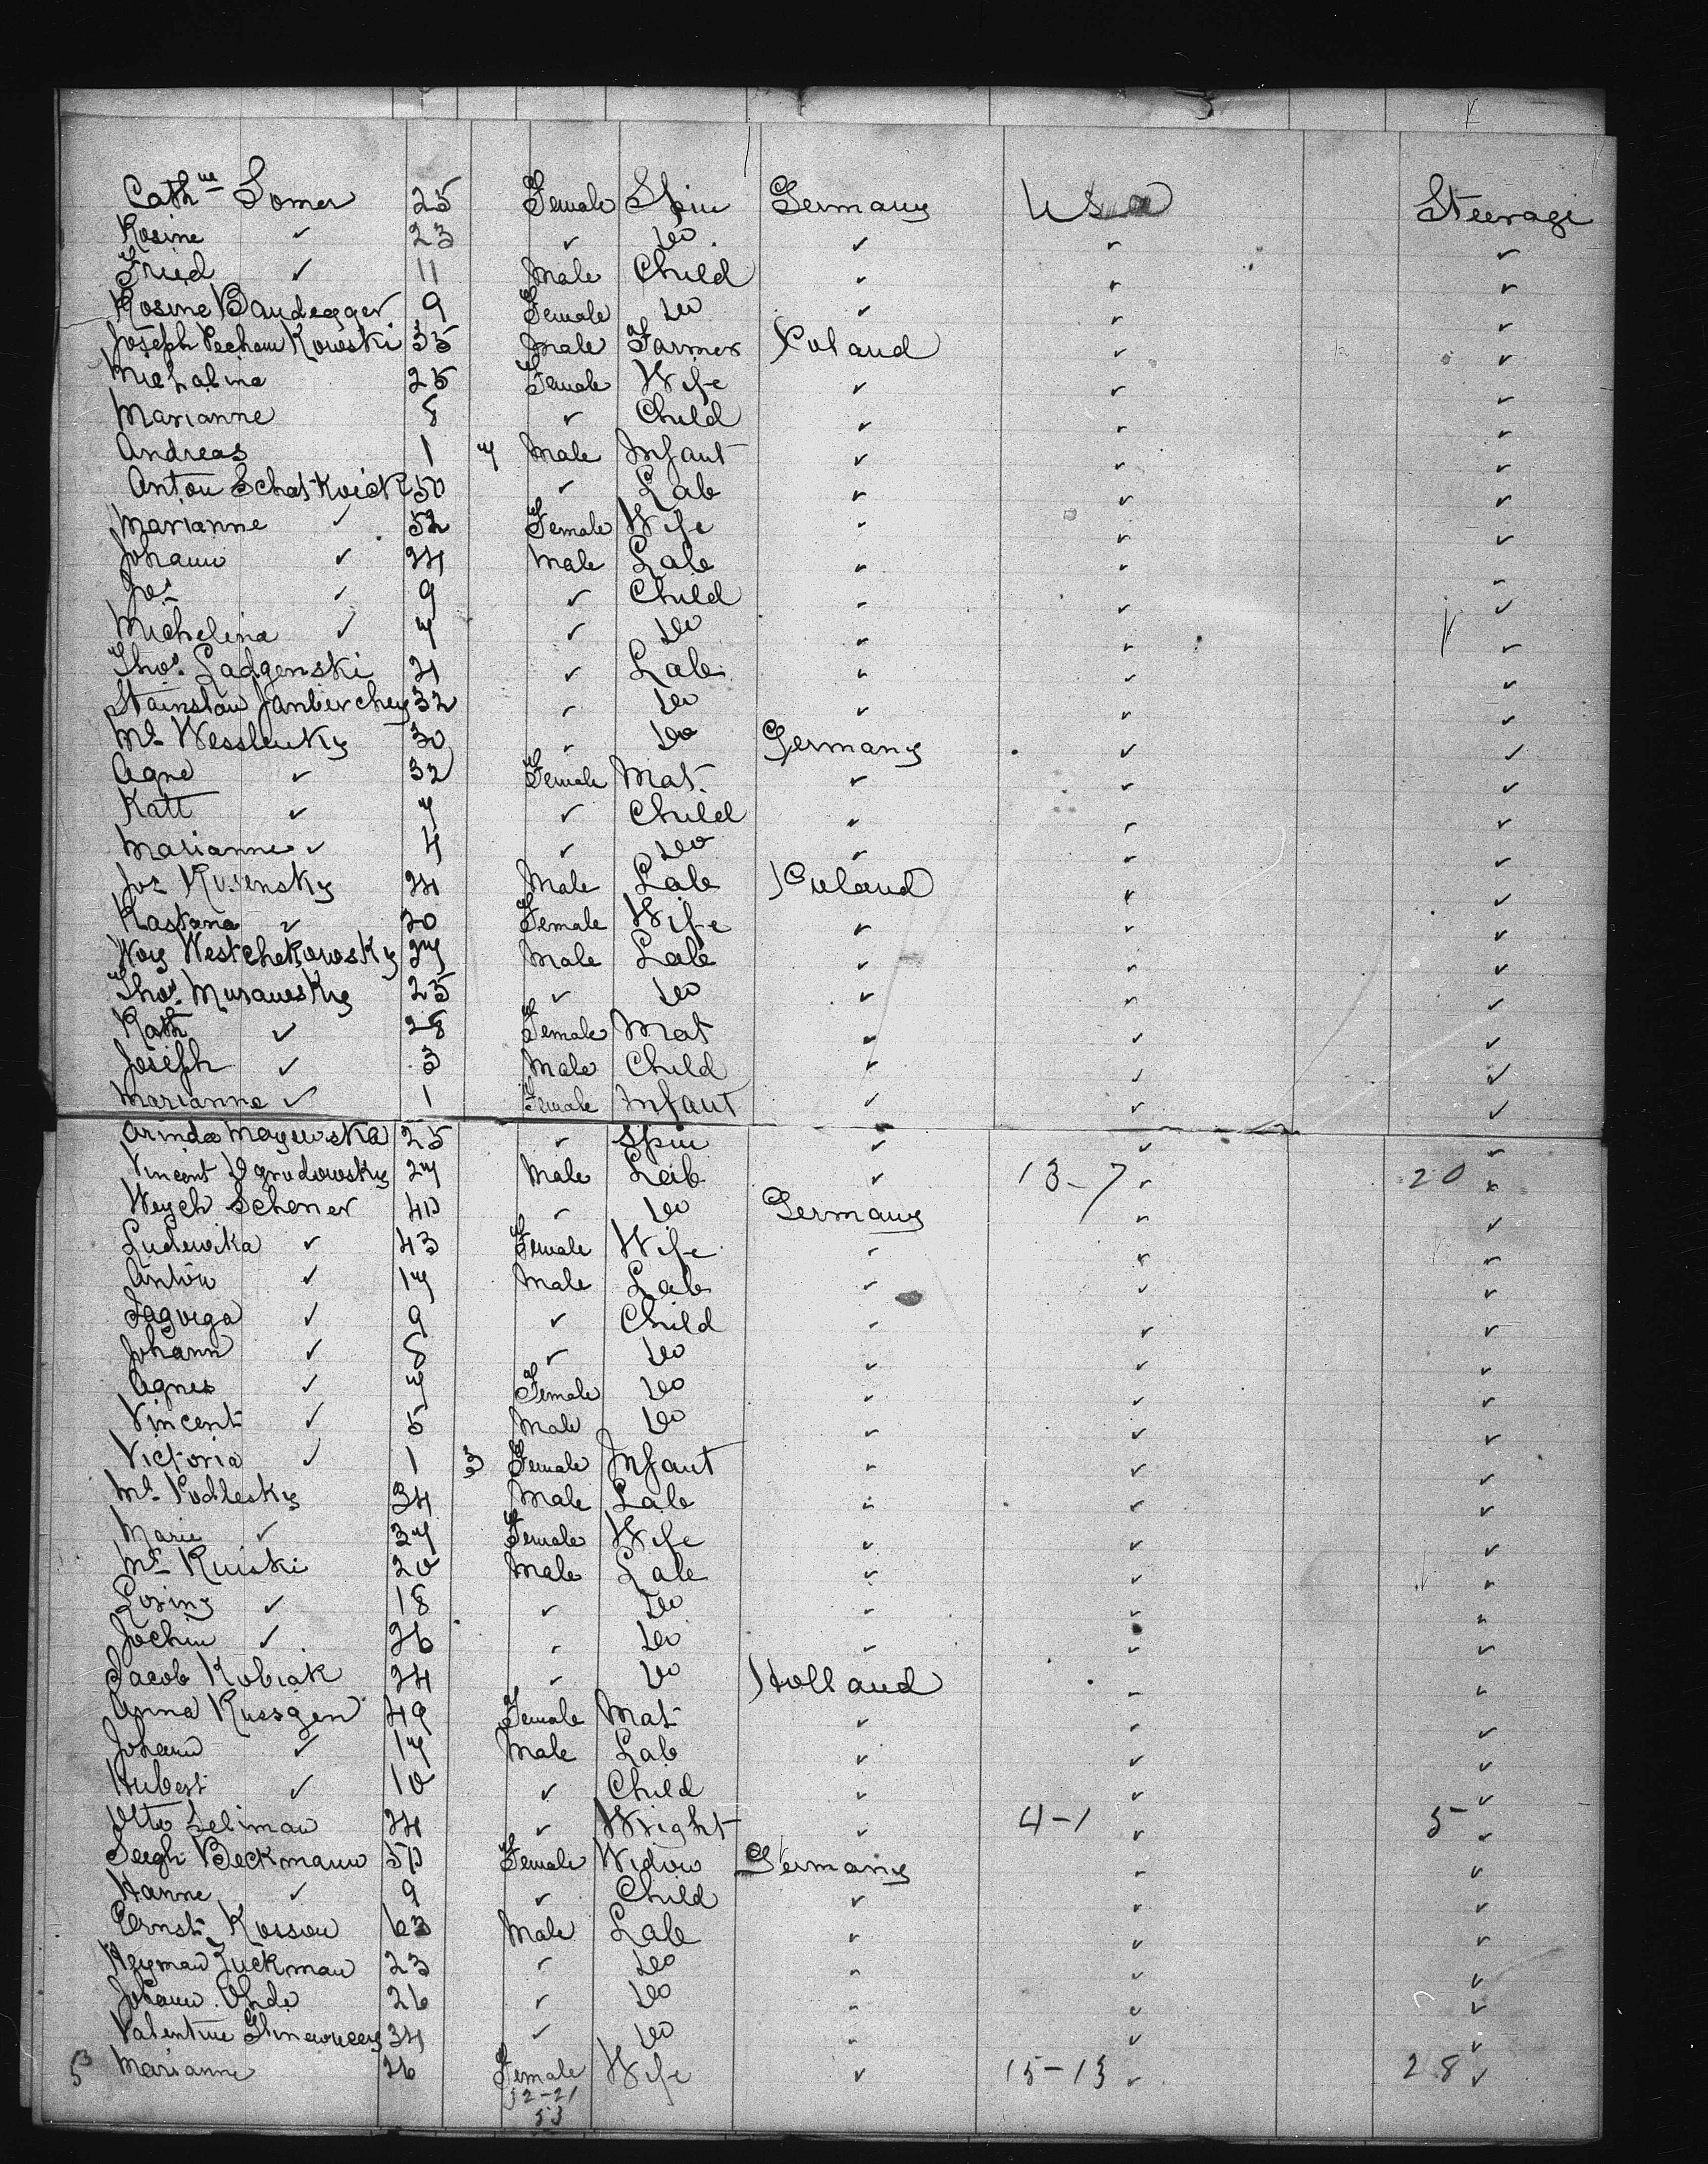 Cathne Somer 25 Female Spin Germany Usa Steerage
Rosine ✓ 23 ✓ Do ✓ ✓ ✓
Fried ✓ 11 Male Child ✓ ✓ ✓
Rosine Baudegger 9 Female Do ✓ ✓ ✓
Joseph Pechem Kowski 35 Male Farmer Poland ✓ ✓
Michalina 25 Female Wife ✓ ✓ ✓
Marianne 8 ✓ Child ✓ ✓ ✓
Andreas 1 7 Male Infant ✓ ✓ ✓
Anton Schatkvick 50 ✓ Lab ✓ ✓ ✓
Marianne ✓ 52 Female Wife ✓ ✓ ✓
Johann ✓ 24 Male Lab ✓ ✓ ✓
Jos ✓ 9 ✓ Child ✓ ✓ ✓
Michelina ✓ 7 ✓ Do ✓ ✓ ✓
Thos. Ladgenski 21 ✓ Lab ✓ ✓ ✓
Stainslaw Janberchey 32 ✓ Do ✓ ✓ ✓
Ml. Wesslenky 30 ✓ Do Germany ✓ ✓
Agne ✓ 32 Female Mat. ✓ ✓ ✓
Katt ✓ 7 ✓ Child ✓ ✓ ✓
Marianne ✓ 4 ✓ Do ✓ ✓ ✓
Jos Rusensky 24 Male Lab Poland ✓ ✓
Kastana ✓ 20 Female Wife ✓ ✓ ✓
Woy Westchekowsky 27 Male Lab ✓ ✓ ✓
Thos. Muraweskey 25 ✓ Do ✓ ✓ ✓
Kath ✓ 28 Female Mat ✓ ✓ ✓
Joseph ✓ 3 Male Child ✓ ✓ ✓
Marianne ✓ 1 Female Infant ✓ ✓ ✓
Arinda Mayewska 25 ✓ Spin ✓ ✓ ✓
Vincent Ogrudowsky 27 Male Lab ✓ 13-7 ✓ 20 ✓
Weych Schener 40 ✓ Do Germany ✓ ✓
Ludewika ✓ 43 Female Wife ✓ ✓ ✓
Anton ✓ 17 Male Lab ✓ ✓ ✓
Jagvega ✓ 9 ✓ Child ✓ ✓ ✓
Johann ✓ 8 ✓ Do ✓ ✓ ✓
Agnes ✓ 7 Female Do ✓ ✓ ✓
Vincent ✓ 5 Male Do ✓ ✓ ✓
Victoria ✓ 1 3 Female Infant ✓ ✓ ✓
Ml. Podlesky 34 Male Lab ✓ ✓ ✓
Marie ✓ 37 Female Wife ✓ ✓ ✓
Ml. Ruiski 20 Male Lab ✓ ✓ ✓
Losing ✓ 18 ✓ Do ✓ ✓ ✓
Jochim ✓ 26 ✓ Do ✓ ✓ ✓
Jacob Kubiak 24 ✓ Do Holland ✓ ✓
Anna Russgen 49 Female Mat ✓ ✓ ✓
Johann ✓ 17 Male Lab ✓ ✓ ✓
Hubert ✓ 10 ✓ Child ✓ ✓ ✓
Otto Seliman 24 ✓ Wright ✓ 4-1 ✓ 5 ✓
Seegh Beckmann 50 Female Widow Germany ✓ ✓
Hanne ✓ 9 ✓ Child ✓ ✓ ✓
Ernst Kossow 63 Male Lab ✓ ✓ ✓
Heyman Zuckman 23 ✓ Do ✓ ✓ ✓
Johann Ohde 26 ✓ Do ✓ ✓ ✓
Valentine 34 ✓ Do ✓ ✓ ✓
53 Marianne 26 Female Wife ✓ 15-13 ✓ 28 ✓
32-21
53